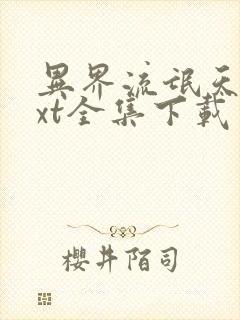 異界流氓天
xt全集下載
櫻井陌司